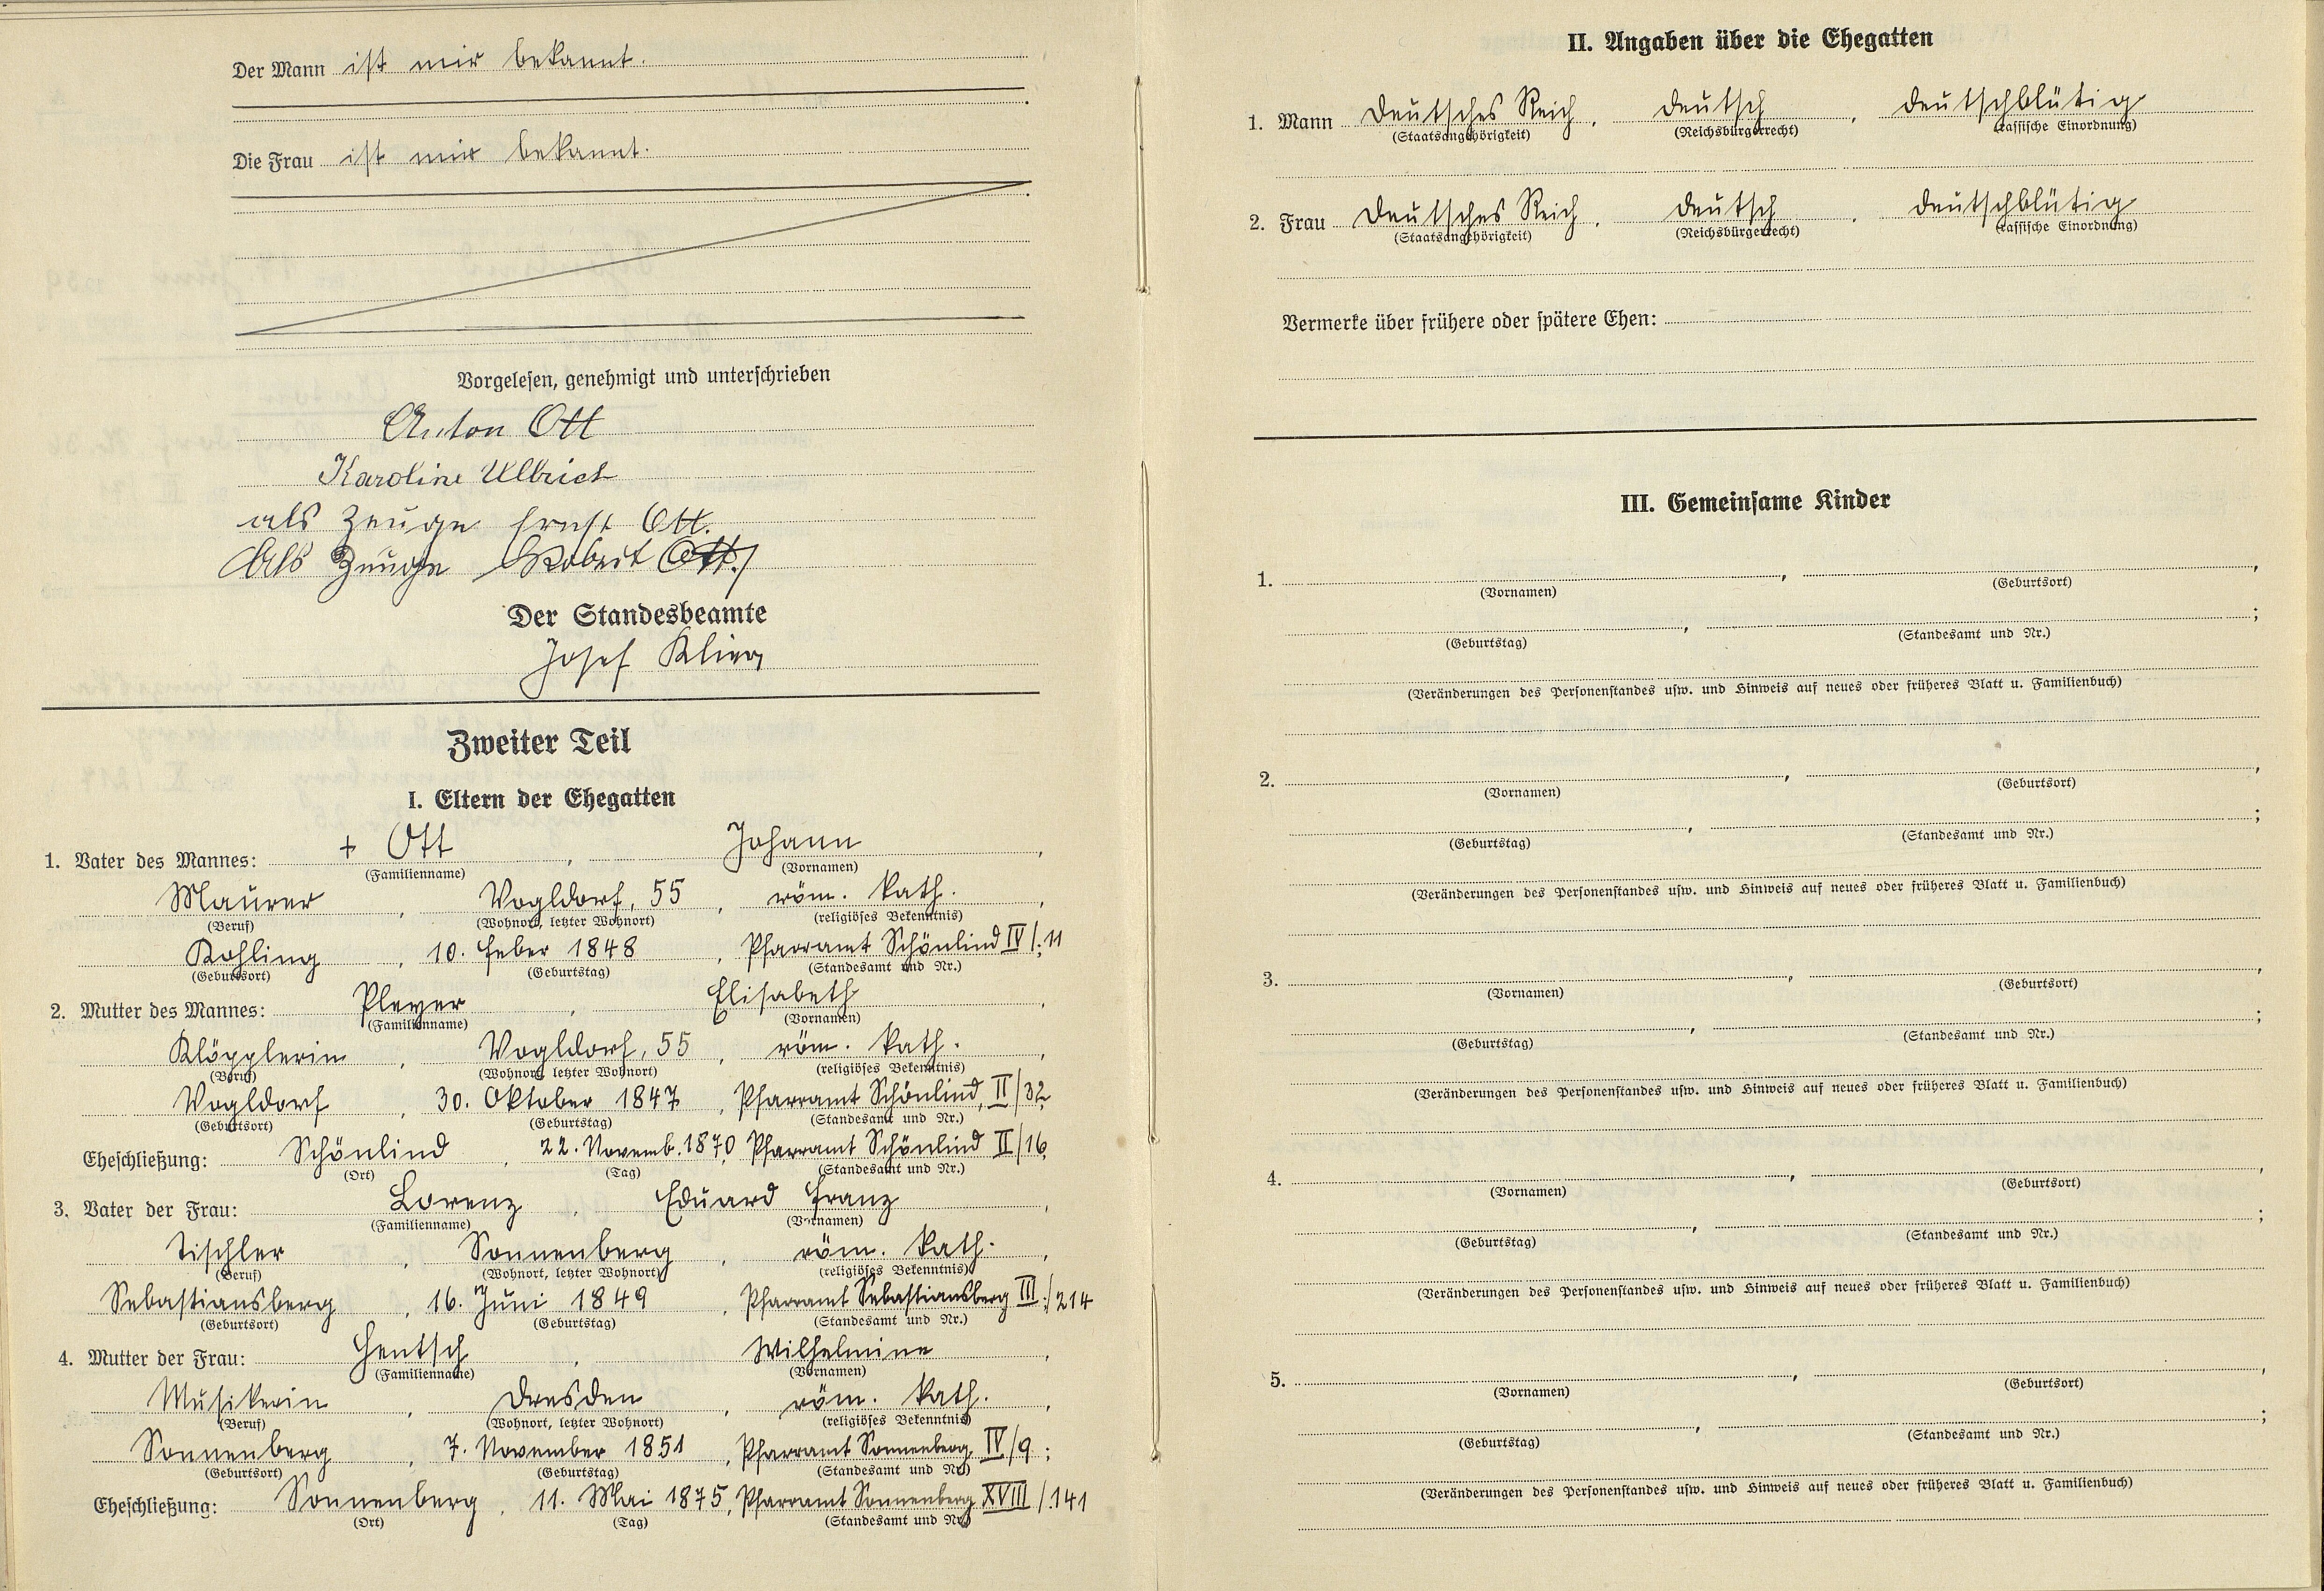 Der Mann ist mir bekannt.
Die Frau ist mir bekannt.
Vorgelesen, genehmigt und unterschrieben
Anton Ott
Karoline Ullrich
als Zeuge Ernst Ott.
Als Zeuge Robert Ott.
Der Standesbeamte
Josef Klier
Zweiter Teil
I. Eltern der Ehegatten
1. Vater des Mannes: + Ott, Johann,
(Familienname) (Vornamen)
Maurer, Vogldorf, 55, röm. kath.,
(Beruf) (Wohnort, letzter Wohnort) (religiöses Bekenntnis)
Kohling, 10. Feber 1848, Pfarramt Schönlind IV/. 11
(Geburtsort) (Geburtstag) (Standesamt und Nr.)
2. Mutter des Mannes: Pleyer, Elisabeth,
(Familienname) (Vornamen)
Klöpplerin, Vogldorf, 55, röm. kath.,
(Beruf) (Wohnort, letzter Wohnort) (religiöses Bekenntnis)
Vogldorf, 30. Oktober 1847, Pfarramt Schönlind, II/32
(Geburtsort) (Geburtstag) (Standesamt und Nr.)
Eheschließung: Schönlind, 22. Novemb. 1870, Pfarramt Schönlind II/16
(Ort) (Tag) (Standesamt und Nr.)
3. Vater der Frau: Lorenz, Eduard Franz,
(Familienname) (Vornamen)
Tischler, Sonnenberg, röm. kath.,
(Beruf) (Wohnort, letzter Wohnort) (religiöses Bekenntnis)
Sebastiansberg, 16. Juni 1849, Pfarramt Sebastiansberg III./214
(Geburtsort) (Geburtstag) (Standesamt und Nr.)
4. Mutter der Frau: Hentsch, Wilhelmine,
(Familienname) (Vornamen)
Musikerin, Dresden, röm. kath.,
(Beruf) (Wohnort, letzter Wohnort) (religiöses Bekenntnis)
Sonnenberg, 7. November 1851, Pfarramt Sonnenberg IV/9;
(Geburtsort) (Geburtstag) (Standesamt und Nr.)
Eheschließung: Sonnenberg, 11. Mai 1875, Pfarramt Sonnenberg XVIII/.141
(Ort) (Tag) (Standesamt und Nr.)
II. Angaben über die Ehegatten
1. Mann Deutsches Reich, deutsch, deutschblütig
(Staatsangehörigkeit) (Reichsbürgerrecht) (rassische Einordnung)
2. Frau Deutsches Reich, deutsch, deutschblütig
(Staatsangehörigkeit) (Reichsbürgerrecht) (rassische Einordnung)
Vermerke über frühere oder spätere Ehen:
III. Gemeinsame Kinder
1. , ,
(Vornamen) (Geburtsort)
, ;
(Geburtstag) (Standesamt und Nr.)
(Veränderungen des Personenstandes usw. und Hinweis auf neues oder früheres Blatt u. Familienbuch)
2. , ,
(Vornamen) (Geburtsort)
, ;
(Geburtstag) (Standesamt und Nr.)
(Veränderungen des Personenstandes usw. und Hinweis auf neues oder früheres Blatt u. Familienbuch)
3. , ,
(Vornamen) (Geburtsort)
, ;
(Geburtstag) (Standesamt und Nr.)
(Veränderungen des Personenstandes usw. und Hinweis auf neues oder früheres Blatt u. Familienbuch)
4. , ,
(Vornamen) (Geburtsort)
, ;
(Geburtstag) (Standesamt und Nr.)
(Veränderungen des Personenstandes usw. und Hinweis auf neues oder früheres Blatt u. Familienbuch)
5. , ,
(Vornamen) (Geburtsort)
, ;
(Geburtstag) (Standesamt und Nr.)
(Veränderungen des Personenstandes usw. und Hinweis auf neues oder früheres Blatt u. Familienbuch)